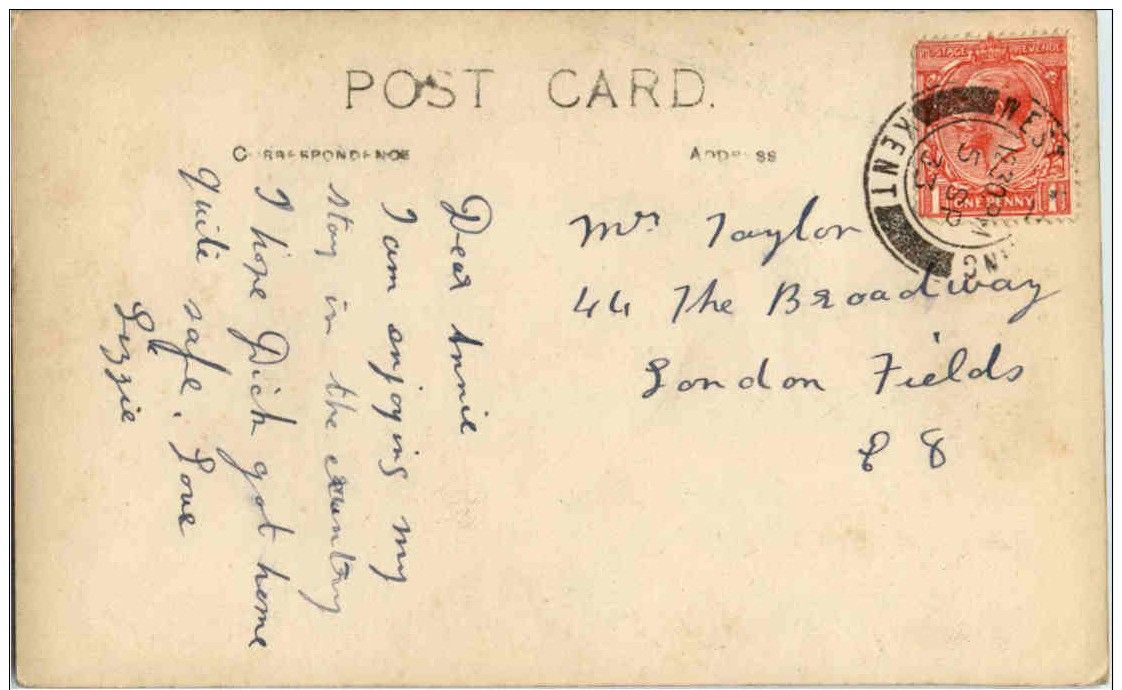 POST CARD.
CORRESPONDENCE
ADDRESS
POSTAGE REVENUE
1 ONE PENNY 1
WEST
KENT
12:30 PM
5 SP
Dear Annie
I am enjoying my
stay in the country
I hope Dick got home
quite safe. Love
Lizzie
Mrs Taylor
44 The Broadway
London Fields
E 8